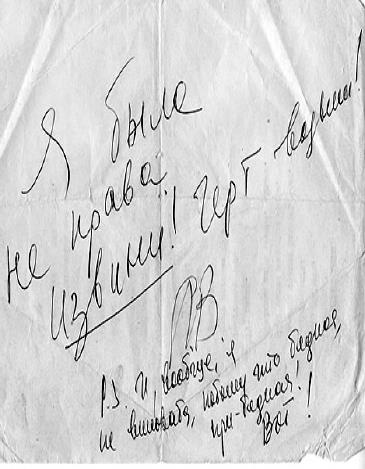 Я была
не права
извини! Черт возьми!
РВ
P.S. И, вообще, я
не виновата, потому что бедная,
при-бедная!
Вот!